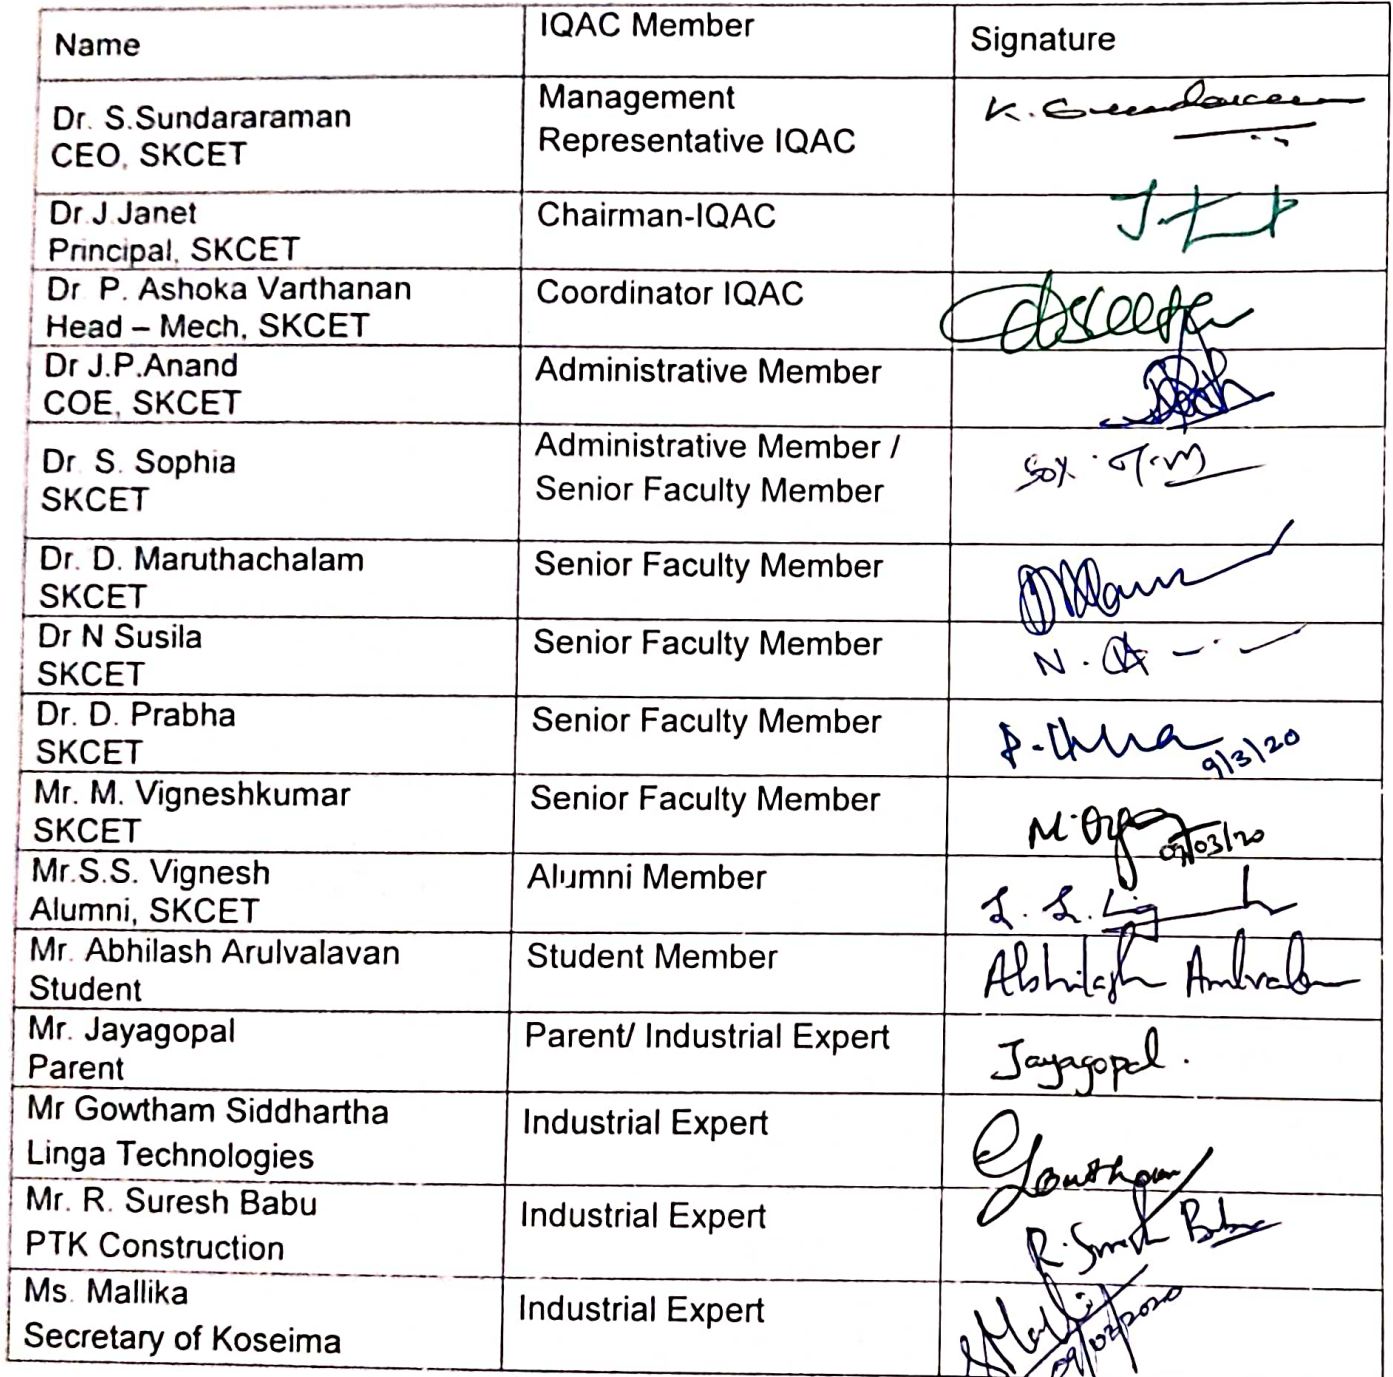 Name
IQAC Member
Signature
Dr. S.Sundararaman
CEO, SKCET
Management
Representative IQAC
Dr.J.Janet
Principal, SKCET
Chairman-IQAC
Dr. P. Ashoka Varthanan
Head – Mech, SKCET
Coordinator IQAC
Dr J.P.Anand
COE, SKCET
Administrative Member
Dr. S. Sophia
SKCET
Administrative Member /
Senior Faculty Member
Dr. D. Maruthachalam
SKCET
Senior Faculty Member
Dr N Susila
SKCET
Senior Faculty Member
N.
Dr. D. Prabha
SKCET
Senior Faculty Member
9/3/20
Mr. M. Vigneshkumar
SKCET
Senior Faculty Member
09/03/20
Mr.S.S. Vignesh
Alumni, SKCET
Alumni Member
Mr. Abhilash Arulvalavan
Student
Student Member
Abhilash
Mr. Jayagopal
Parent
Parent/ Industrial Expert
Jayagopal.
Mr Gowtham Siddhartha
Linga Technologies
Industrial Expert
Gowtham
Mr. R. Suresh Babu
PTK Construction
Industrial Expert
R. Suresh Babu
Ms. Mallika
Secretary of Koseima
Industrial Expert
09/03/2020